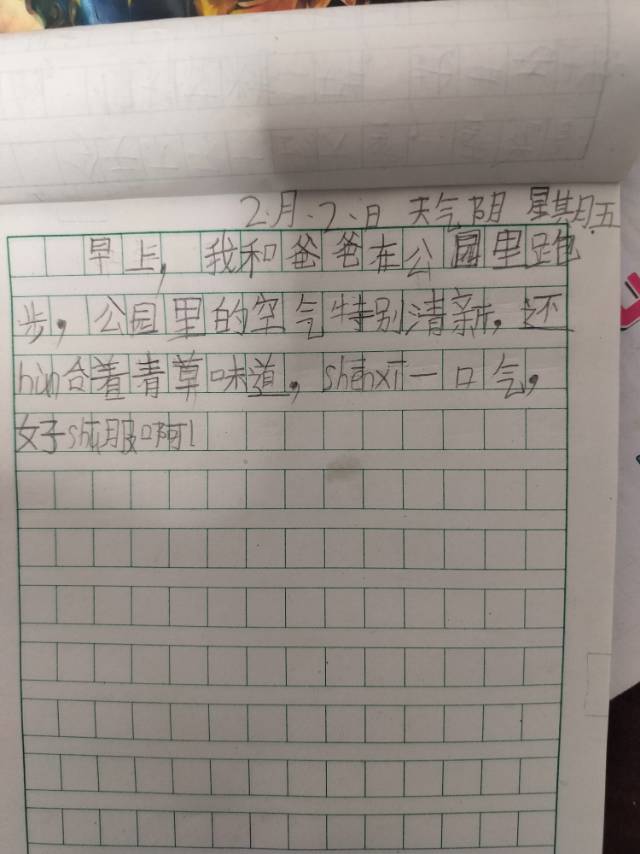 2月2日 天气阴 星期五
早上，我和爸爸在公园里跑
步，公园里的空气特别清新，还
hùn合着青草味道，shēnxī一口气，
好shū服啊！